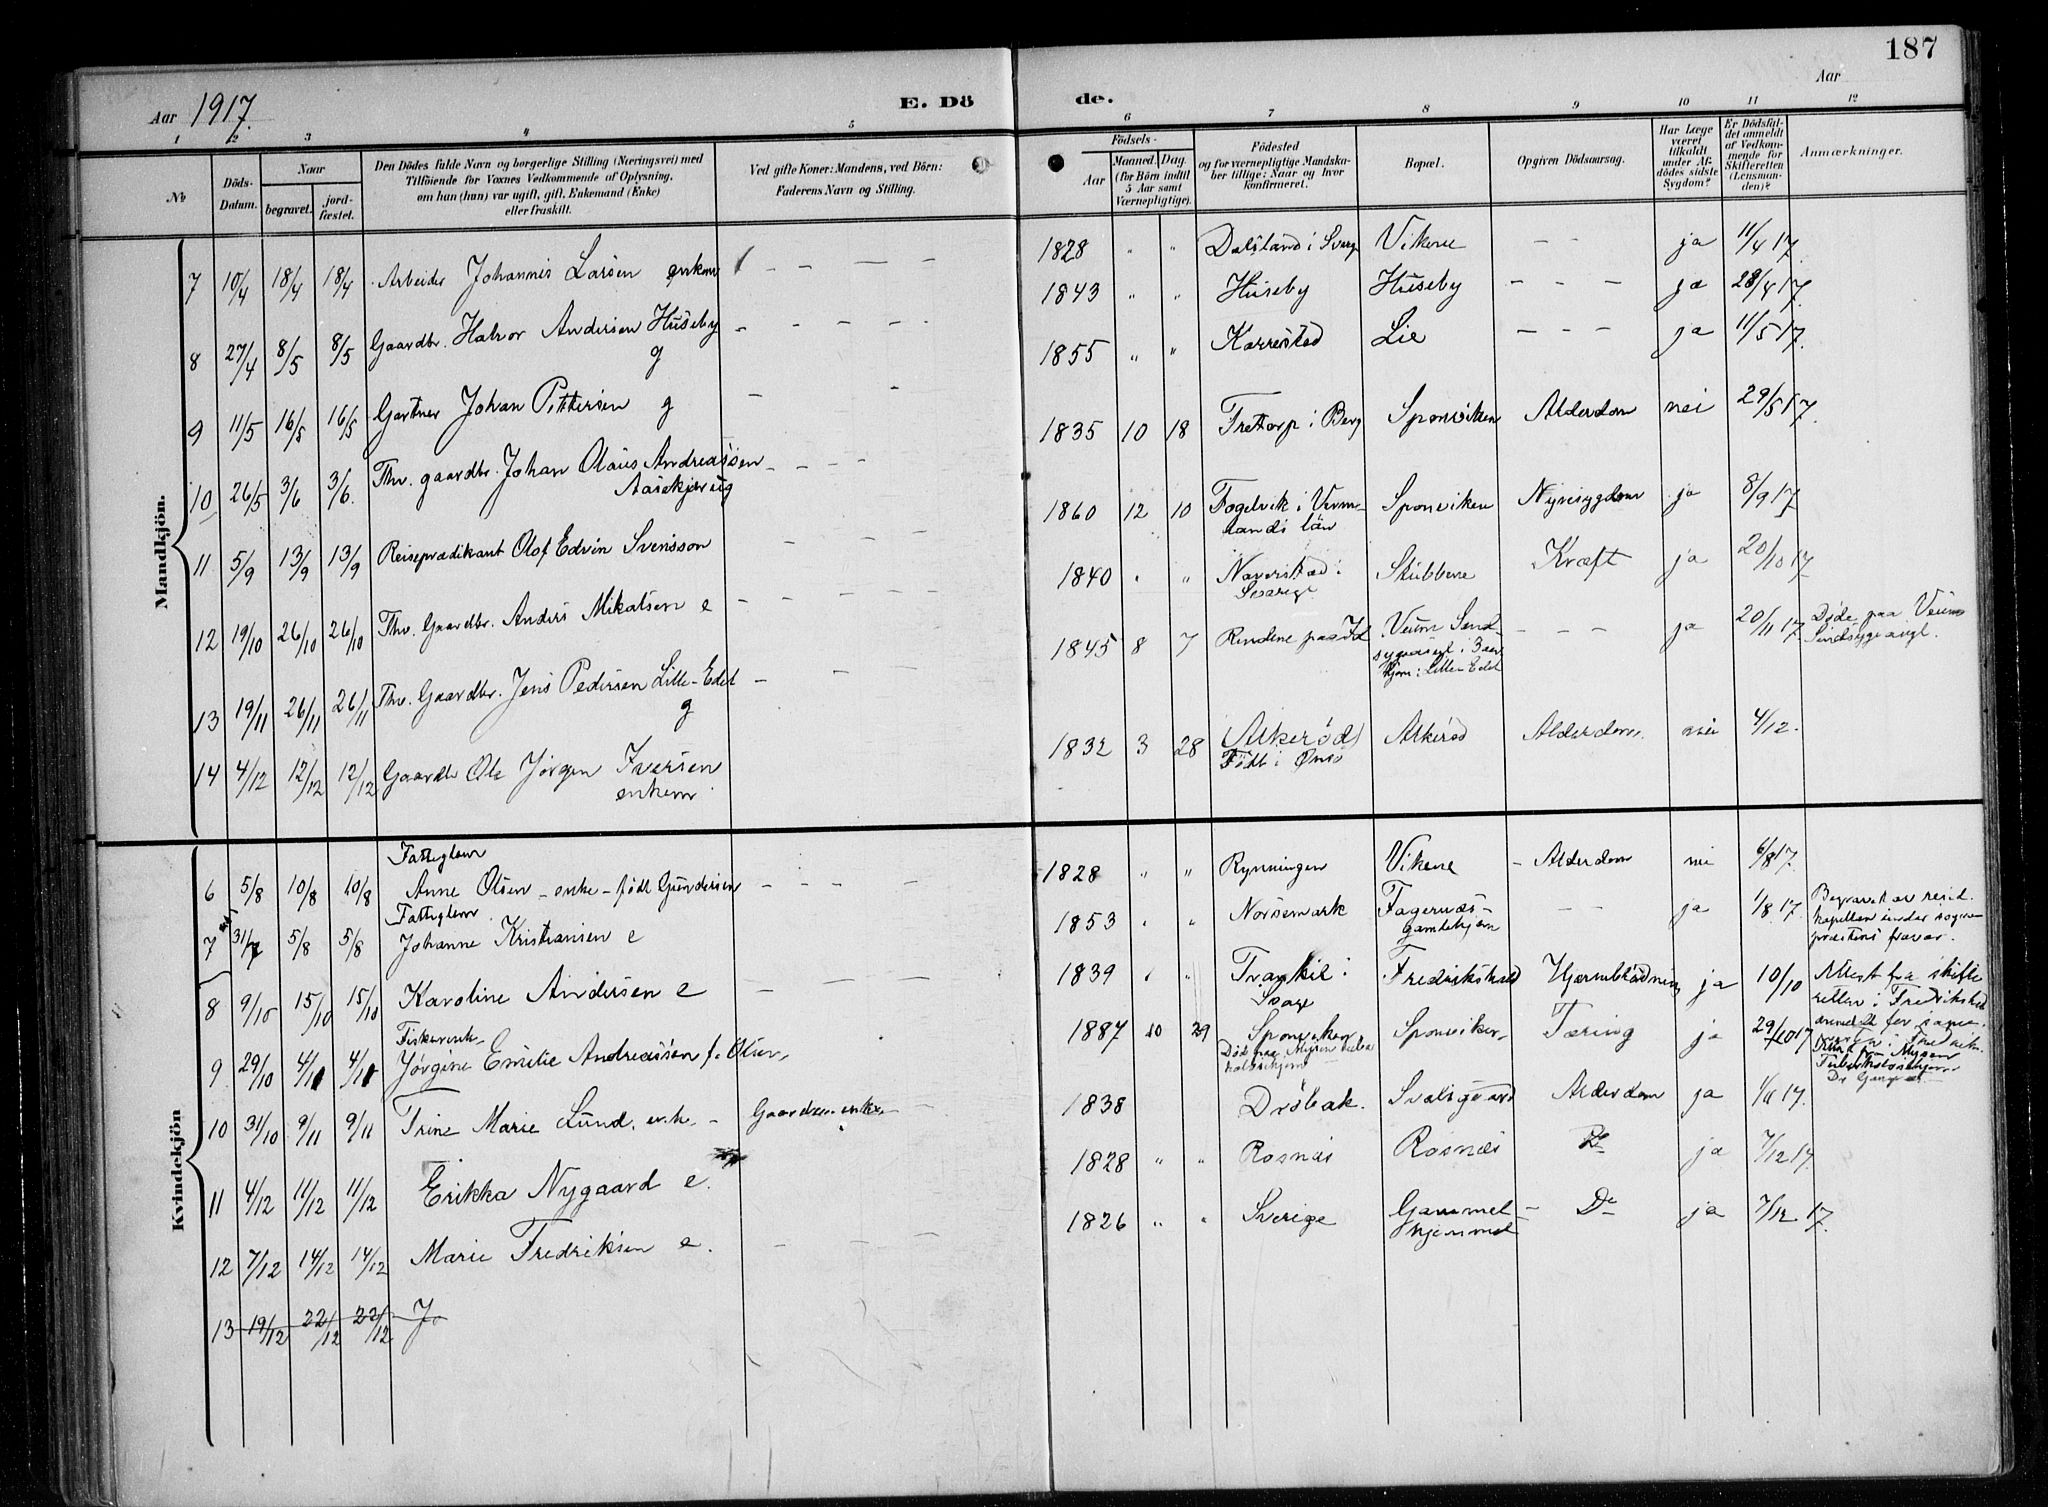 187
Aar 1917.
E. Dö
de.
Aar
1 2 3 4 5 6 7 8 9 10 11 12
No
Döds-Datum.
Naar
begravet.
jordfæstet.
Den Dödes fulde Navn og borgerlige Stilling (Næringsvei) med
Tilföiende for Voxnes Vedkommende af Oplysning,
om han (hun) var ugift, gift, Enkemand (Enke)
eller fraskilt.
Ved gifte Koner: Mandens, ved Börn:
Faderens Navn og Stilling.
Födsels-
Aar
Maaned. Dag.
(for Börn indtil
5 Aar samt
Værnepligtige).
Födested
og for værnepligtige Mandskaber tillige: Naar og hvor
konfirmeret.
Bopæl.
Opgiven Dödsaarsag.
Har Læge
været
tilkaldt
under Afdödes sidste
Sygdom?
Er Dödsfaldet anmeldt
af Vedkommende for
Skifteretten
(Lensmanden)?
Anmærkninger.
Mandkjön.
7 10/4 18/4 18/4 Arbeider Johannis Larsen enkem — — — — 1828 " " Dalsland i Sverg Vikene — — ja 11/4 17.
8 27/4 8/5 8/5 Gaardbr. Halvor Andersen Huseby g — — — — 1843 " " Huseby Huseby — — — ja 28/4 17.
9 11/5 16/5 16/5 Gartner Johan Pettersen g — — 1855 " " Karrestad Lie — — — ja 11/5 17.
10 26/5 3/6 3/6. Fhv. gaardbr. Johan Olaus Andreassen — — — 1835 10 18 Tretorp i Berg Sponviken Alderdom nei 29/5 17.
11 5/9 13/9 13/9 Reiseprædikant Olof Edvin Svensson — — — 1860 12 10 Fogelvik i Vermlands län Sponviken Nyresygdom ja 8/9 17.
12 19/10 26/10 26/10 Fhv. Gaardbr. Anders Mikalsen e — — — — 1840 " " Naverstad i Sverige Stubbene Kræft ja 20/10 17
13 19/11 26/11 26/11 Fhv. Gaardbr. Jens Pedersen Lille-Edet g — — 1845 8 7 Rindene paa Id Veum Sindsygeasyl i Lille-Edet — — — ja 20/11 17 Døde paa Veums Sindsygeasyl.
14 4/12 12/12 12/12 Gaardbr Ole Jørgen Iversen enkem 1832 3 28 (Alkerød) Født i Onsø Alkerød Alderdom. nei 4/12.
Kvindekjön
6 5/8 10/8 10/8 Fattiglem Anne Olsen — enke — født Gundersen — — — — 1828 " " Rynningen Vikene — Alderdom nei 6/8 17.
7 31/7 5/8 5/8 Fattiglem. Johanne Kristiansen e 1853 " " Norsemark Fagernæs — — ja 1/8 17. Begravet av resid. kapellan under sogneprestens fravær.
8 9/10 15/10 15/10 Karoline Andersen e — — — — 1839 " " Trankil i Sverge Fredrikshald Hjerneblødning ja 10/10 Attest fra skifteretten i Fredrikshald
9 29/10 4/11 4/11 Jørgine Emelie Andreassen f. Olsen 1887 10 29 Sponviken Sponviken Tæring ja 29/10 17
10 31/10 9/11 9/11 Trine Marie Lund. enke — Gaardbr. enke — — 1838 Drøbak. Alderdom ja 1/11 17.
11 4/12 11/12 11/12 Erikka Nygaard e. 1828 " " Rosnæs Rosnæs Do ja 7/12 17.
12 7/12 14/12 14/12 Marie Fredriksen e. — — — — 1826 " " Sverige Gammelhjemmet — Do ja 7/12 17.
13 19/12 22/12 22/12 Jo